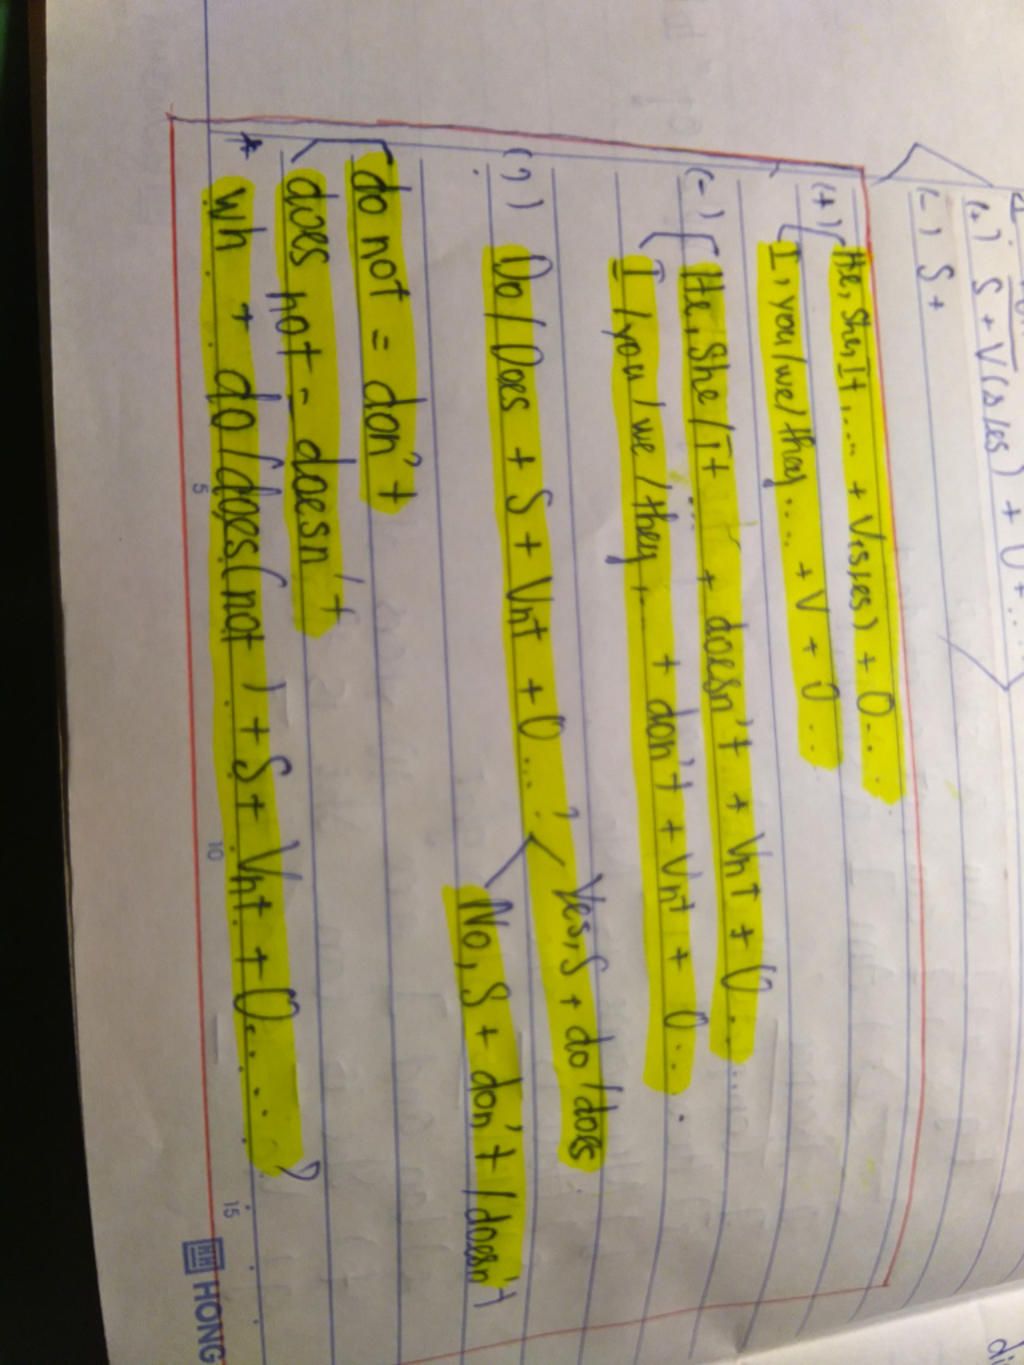 (+) S + V(s/es) + O + ....
(-) S +
(+) He, She, It .... + V(s,es) + O...
I, you/we/they.... + V + O...
(-) He, She/It ... + doesn't + Vnt + O.....
I/you/we/they,... + don't + Vnt + O...
(?) Do/Does + S + Vnt + O...? Yes, S + do/does
No, S + don't/doesn't
do not = don't
does not = doesn't
* Wh + do/does(not) + S + Vnt + O.....?
5 10 15
HONG